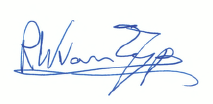 RWvan Zyp